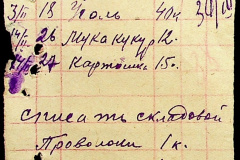 3/II 18 Уголь 40к
14/II 26 Мука кукур 12.
14/II 27 Картошка 15.
списать складовой
Проволоки 1 к.